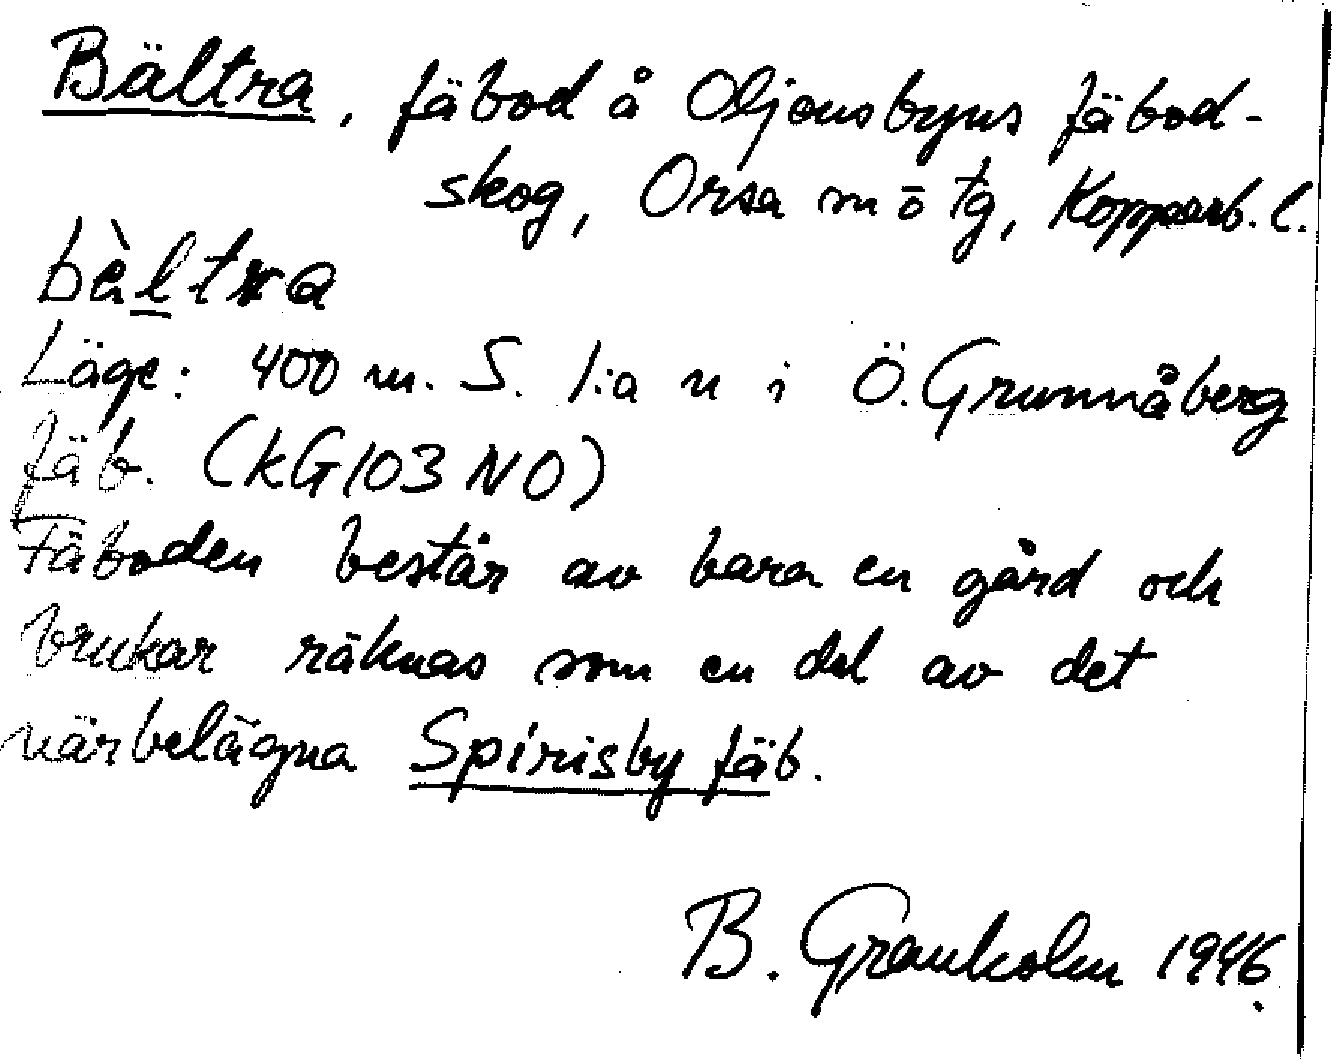 Bältra, fäbod å Oljonsbyns fäbod-
skog, Orsa sn ö tg, Kopparb. l.
bèltra
Läge: 400 m. S. 1:a n i Ö. Grunnåberg
fäb. (kG 103 NO)
Fäboden består av bara en gård och
brukar räknas som en del av det
närbelägna Spirisby fäb.
B. Granholm 1946.